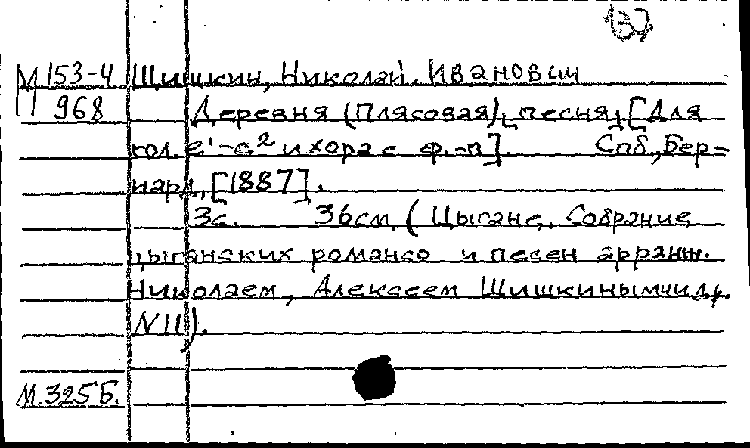 137
М 153-4 Шишкин, Николай Иванович
II 968 Деревня (Плясовая), песня, [Для
гол. e¹-c² и хора с ф.-п]. Спб, Бер-
нард, [1887].
3с. 36см. (Цыгане. Собрание
цыганских романсо и песен арранж.
Николаем, Алексеем Шишкиными
N11).
М.325Б.